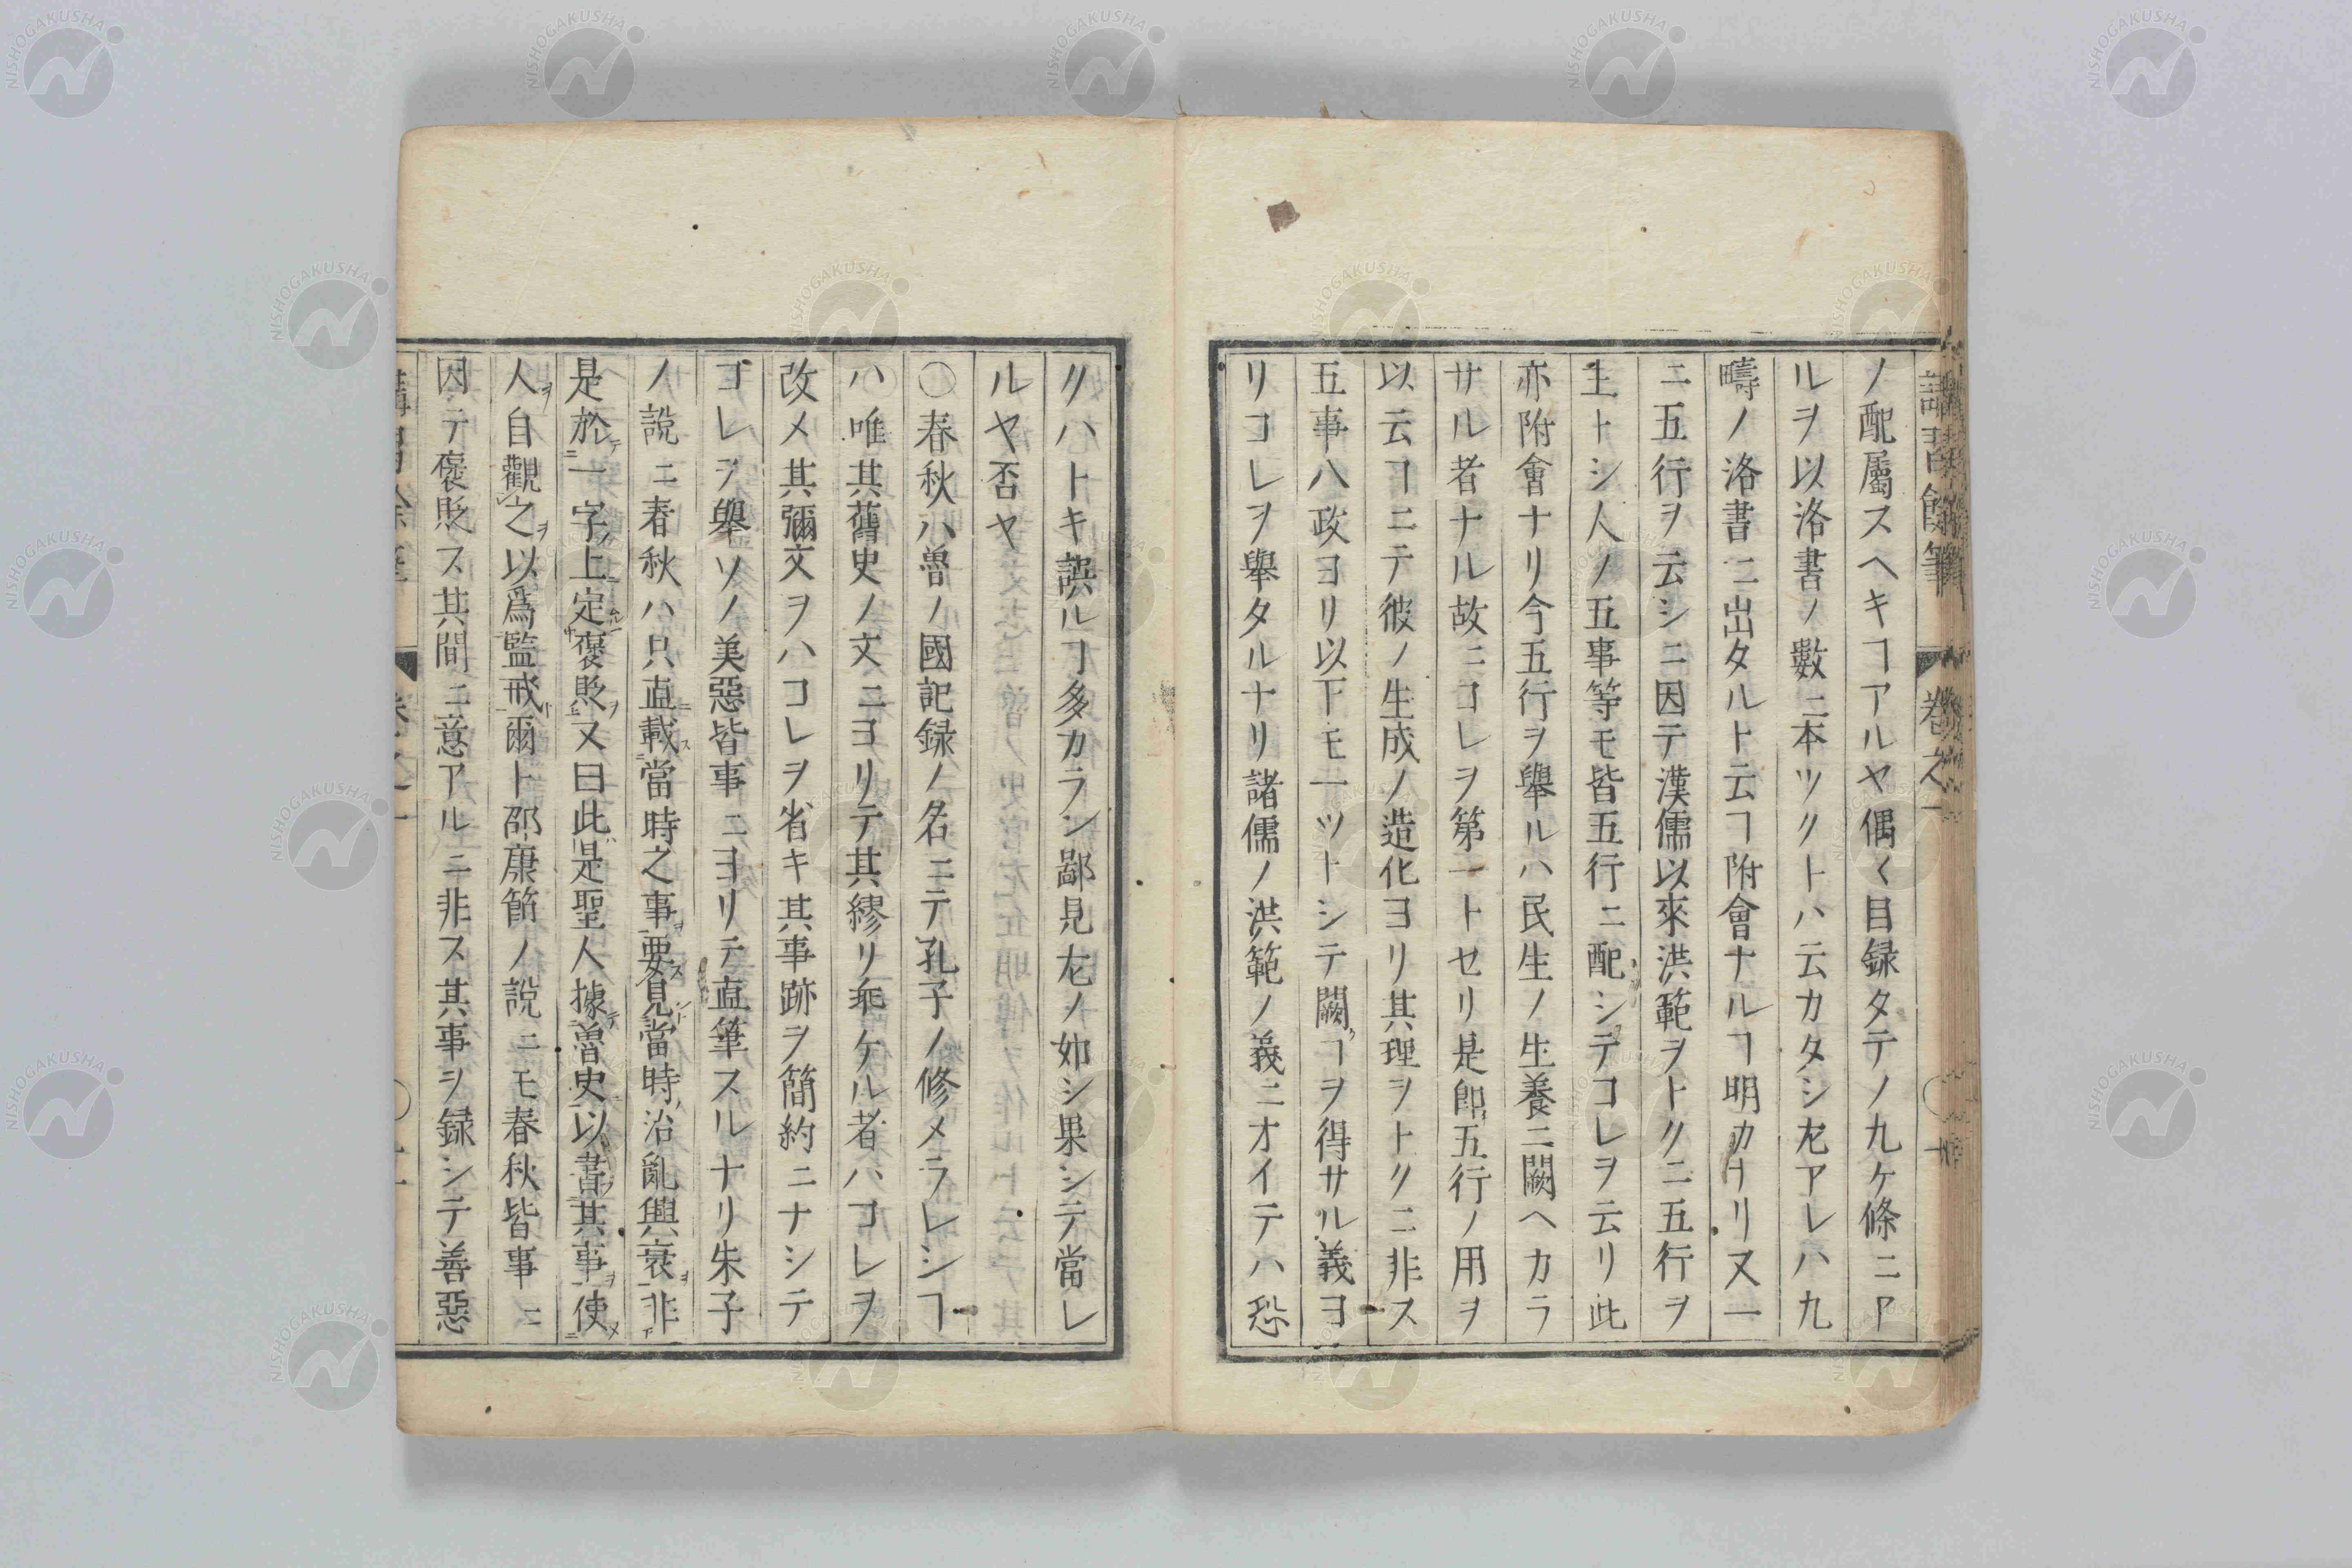 講習餘筆 卷之一
ノ配屬スヘキヿアルヤ偶〱目録タテノ九ケ條ニア
ルヲ以洛書ノ數ニ本ツクトハ云カタシ尨アレハ九
疇ノ洛書ニ出タルト云ヿ附會ナルヿ明カナリ又一
ニ五行ヲ云シニ因テ漢儒以來洪範ヲトクニ五行ヲ
主トシ人ノ五事等モ皆五行ニ配シテコレヲ云リ此
亦附會ナリ今五行ヲ舉ルハ民生ノ生養ニ闕ヘカラ
サル者ナル故ニコレヲ第一トセリ是卽五行ノ用ヲ
以云ヿニテ彼ノ生成ノ造化ヨリ其理ヲトクニ非ス
五事八政ヨリ以下モ一ツトシテ闕クヿヲ得サル義ヨ
リコレヲ舉タルナリ諸儒ノ洪範ノ義ニオイテハ恐
クハトキ誤ルヿ多カラン鄙見尨ノ如シ果シテ當レ
ルヤ否ヤ
〇春秋ハ魯ノ國記録ノ名ニテ孔子ノ修メラレシヿ
ハ唯其舊史ノ文ニヨリテ其繆リ乖ケル者ハコレヲ
改メ其彌文ヲハコレヲ省キ其事跡ヲ簡約ニナシテ
コレヲ舉ソノ美惡皆事ニヨリテ直筆スルナリ朱子
ノ說ニ春秋ハ只直載當時之事要見當時治亂興衰非
是於一字上定襃貶又曰此是聖人據魯史以書其事使
人自觀之以爲監戒爾ト邵康節ノ說ニモ春秋皆事ニ
因テ襃貶ス其間ニ意アルニ非ス其事ヲ録シテ善惡